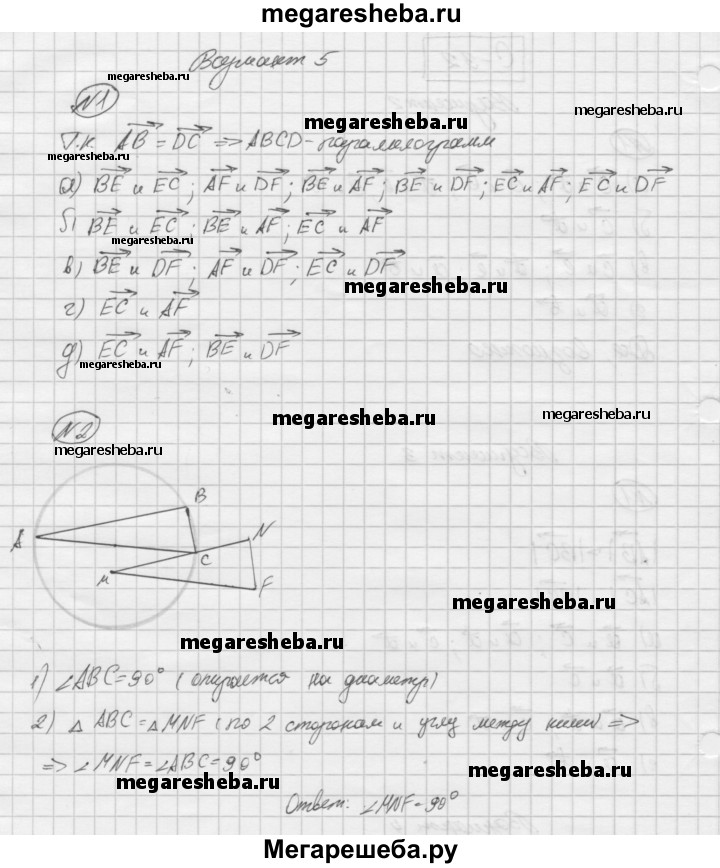 megaresheba.ru
Вариант 5
megaresheba.ru
megaresheba.ru
N1
megaresheba.ru
Т.к. AB = DC => ABCD - параллелограмм
а) BE и EC; AF и DF; BE и AF; BE и DF; EC и AF; EC и DF
б) BE и EC; BE и AF; EC и AF
megaresheba.ru
в) BE и DF; AF и DF; EC и DF
megaresheba.ru
г) EC и AF
д) EC и AF; BE и DF
megaresheba.ru
N2
megaresheba.ru
megaresheba.ru
megaresheba.ru
B
A
N
C
M
F
megaresheba.ru
megaresheba.ru
1) ∠ABC = 90° (опирается на диаметр)
2) △ ABC = △ MNF (по 2 сторонам и углу между ними) =>
=> ∠MNF = ∠ABC = 90°
megaresheba.ru
megaresheba.ru
Ответ: ∠MNF = 90°
Мегарешеба.ру